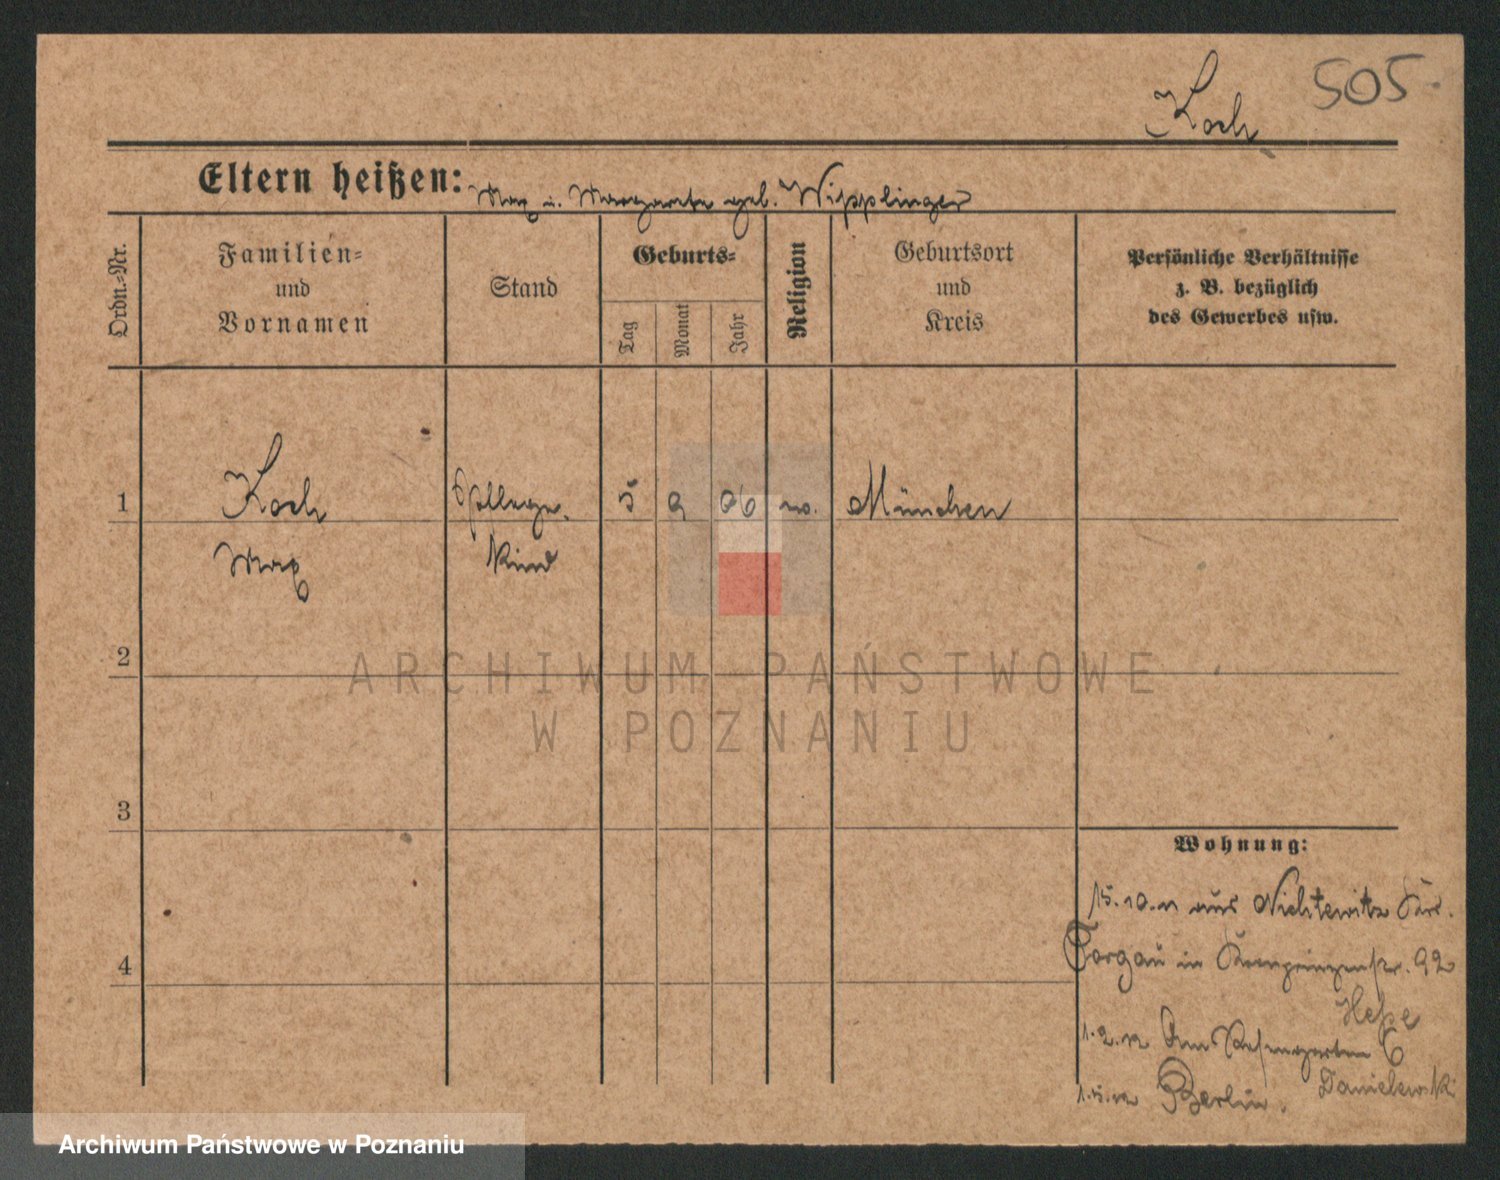 505
Koch
Eltern heißen: Max u. Margarete geb. Wipplinger
Ordn.-Nr.
Familien-
und
Vornamen
Stand
Geburts-
Tag
Monat
Jahr
Religion
Geburtsort
und
Kreis
Persönliche Verhältnisse
z. B. bezüglich
des Gewerbes usw.
1
Koch
Pflege-
5 9 06
München
Max
kind
2
ARCHIWUM PAŃSTWOWE
W POZNANIU
3
Wohnung:
15.10.11 aus Nichtewitz
4
Torgau in Kronprinzenstr. 92
Hesse
1.2.12 Am Rosengarten 6
Danielewski
Berlin.
Archiwum Państwowe w Poznaniu